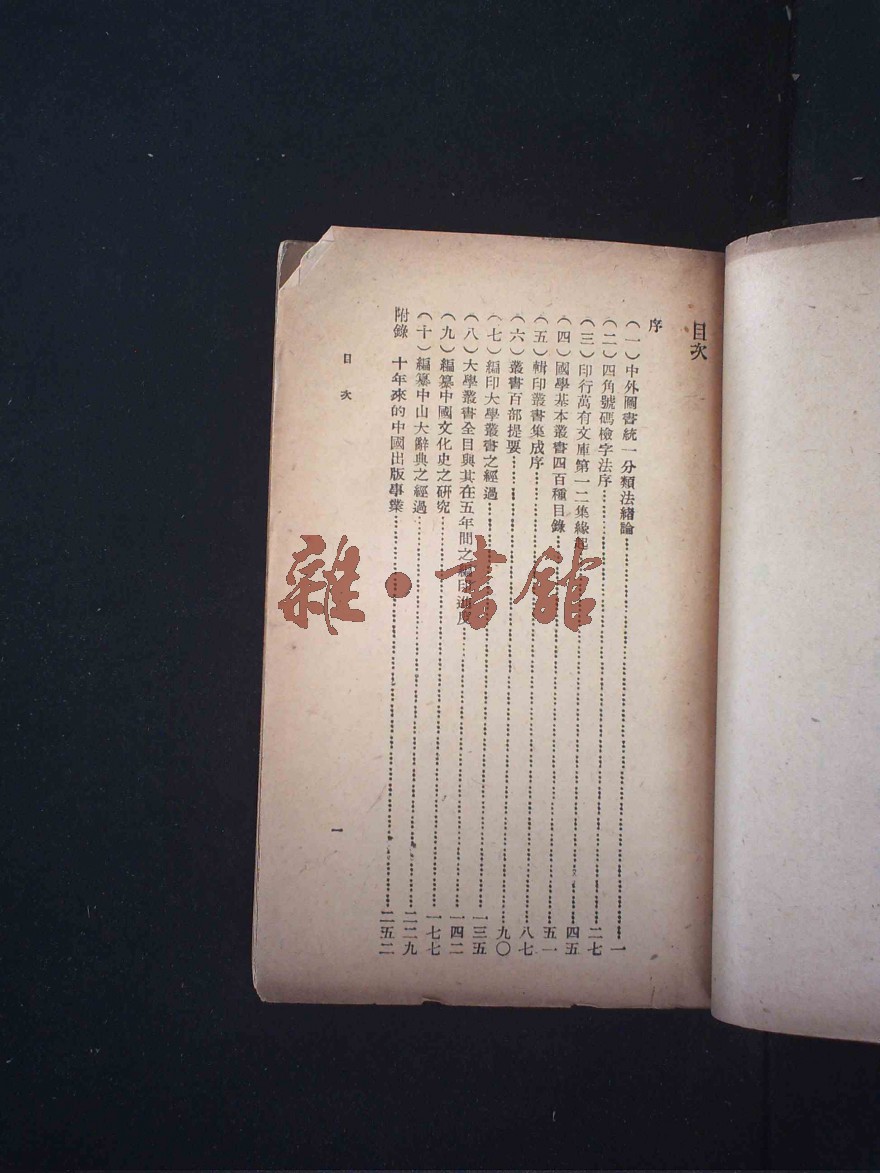 目次
序
（一）中外圖書統一分類法緒論…………一
（二）四角號碼檢字法序…………二七
（三）印行萬有文庫第一二集緣起…………四五
（四）國學基本叢書四百種目錄…………五一
（五）輯印叢書集成序…………八七
（六）叢書百部提要…………九〇
（七）編印大學叢書之經過…………一三五
（八）大學叢書全目與其在五年間之編印進度…………一四二
（九）編纂中國文化史之研究…………一七七
（十）編纂中山大辭典之經過…………二二九
附錄 十年來的中國出版事業…………二五二
目次
一
雜·書館